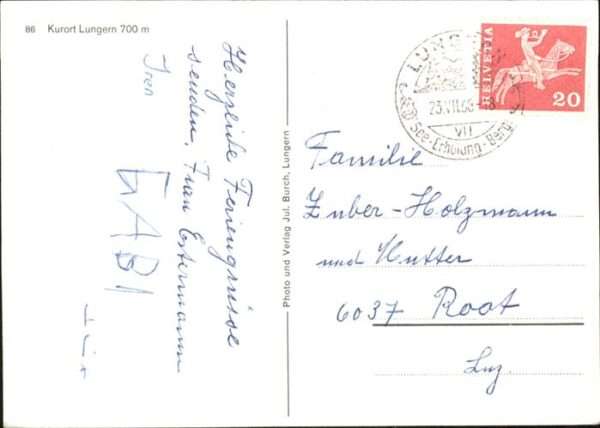 86 Kurort Lungern 700 m
Herzliche Feriengrüsse
senden, Frau Estermann
Iren
GABI
Photo und Verlag Jul. Burch, Lungern
LUNGERN
23.VII.68-8
VII
See-Erholung-Berge
HELVETIA
20
Familie
Zuber-Holzmann
und Mutter
6037 Root
Luz.